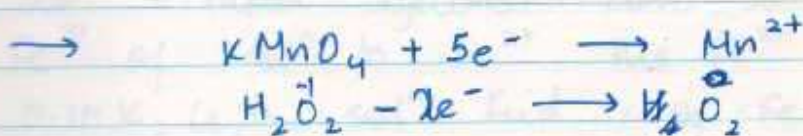 → KMnO₄ + 5e⁻ → Mn²⁺
H₂O₂⁻¹ - 2e⁻ → O₂⁰